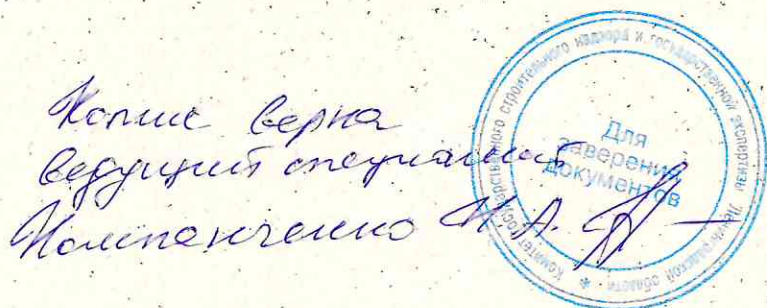 Копия верна
ведущий специалист
Компанченко Н.А.
Комитет государственного строительного надзора и государственной экспертизы Ленинградской области *
Для
заверения
документов